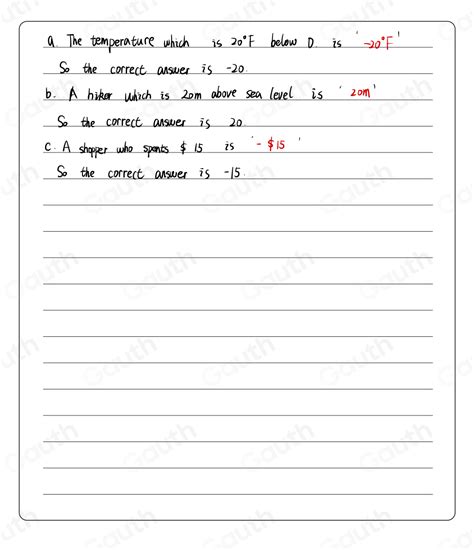 a. The temperature which is 20°F below 0. is '-20°F'
So the correct answer is -20.
b. A hiker which is 20m above sea level is '20m'
So the correct answer is 20.
c. A shopper who spents $15 is '-$15'
So the correct answer is -15.
Gauth